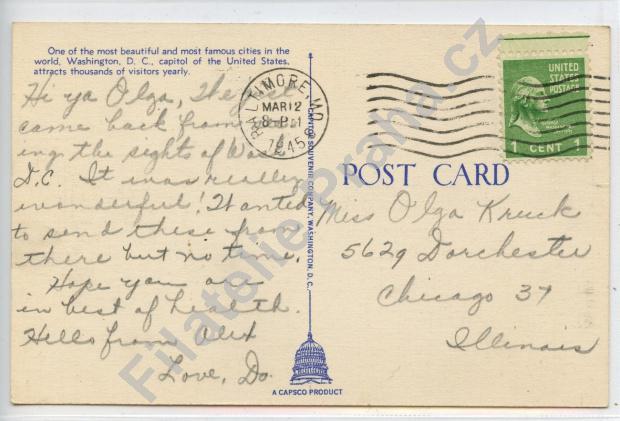 One of the most beautiful and most famous cities in the
world, Washington, D. C., capitol of the United States,
attracts thousands of visitors yearly.
Hi ya Olga, The
came back from
ing the sights of Wash
D.C. It was really
wonderful! Wanted
to send these from
there but no time.
Hope you are
in best of health.
Hello from
Love, Do.
BALTIMORE, MD.
MAR 12
8-PM
1945
CAPITOL SOUVENIR COMPANY, WASHINGTON, D. C.
A CAPSCO PRODUCT
UNITED
STATES
POSTAGE
1 CENT 1
POST CARD
Miss Olga Kruck
5629 Dorchester
Chicago 37
Illinois
Filatelie-Praha.cz